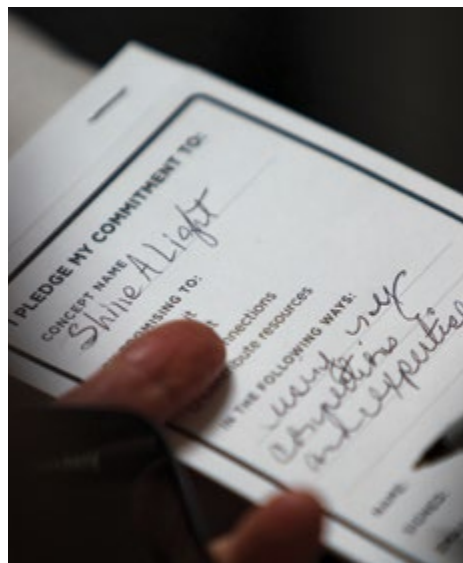 I PLEDGE MY COMMITMENT TO:
CONCEPT NAME
Shine A Light
OMISING TO:
nnections
route resources
IN THE FOLLOWING WAYS:
using my
and expertise
NAME:
SIGNED: